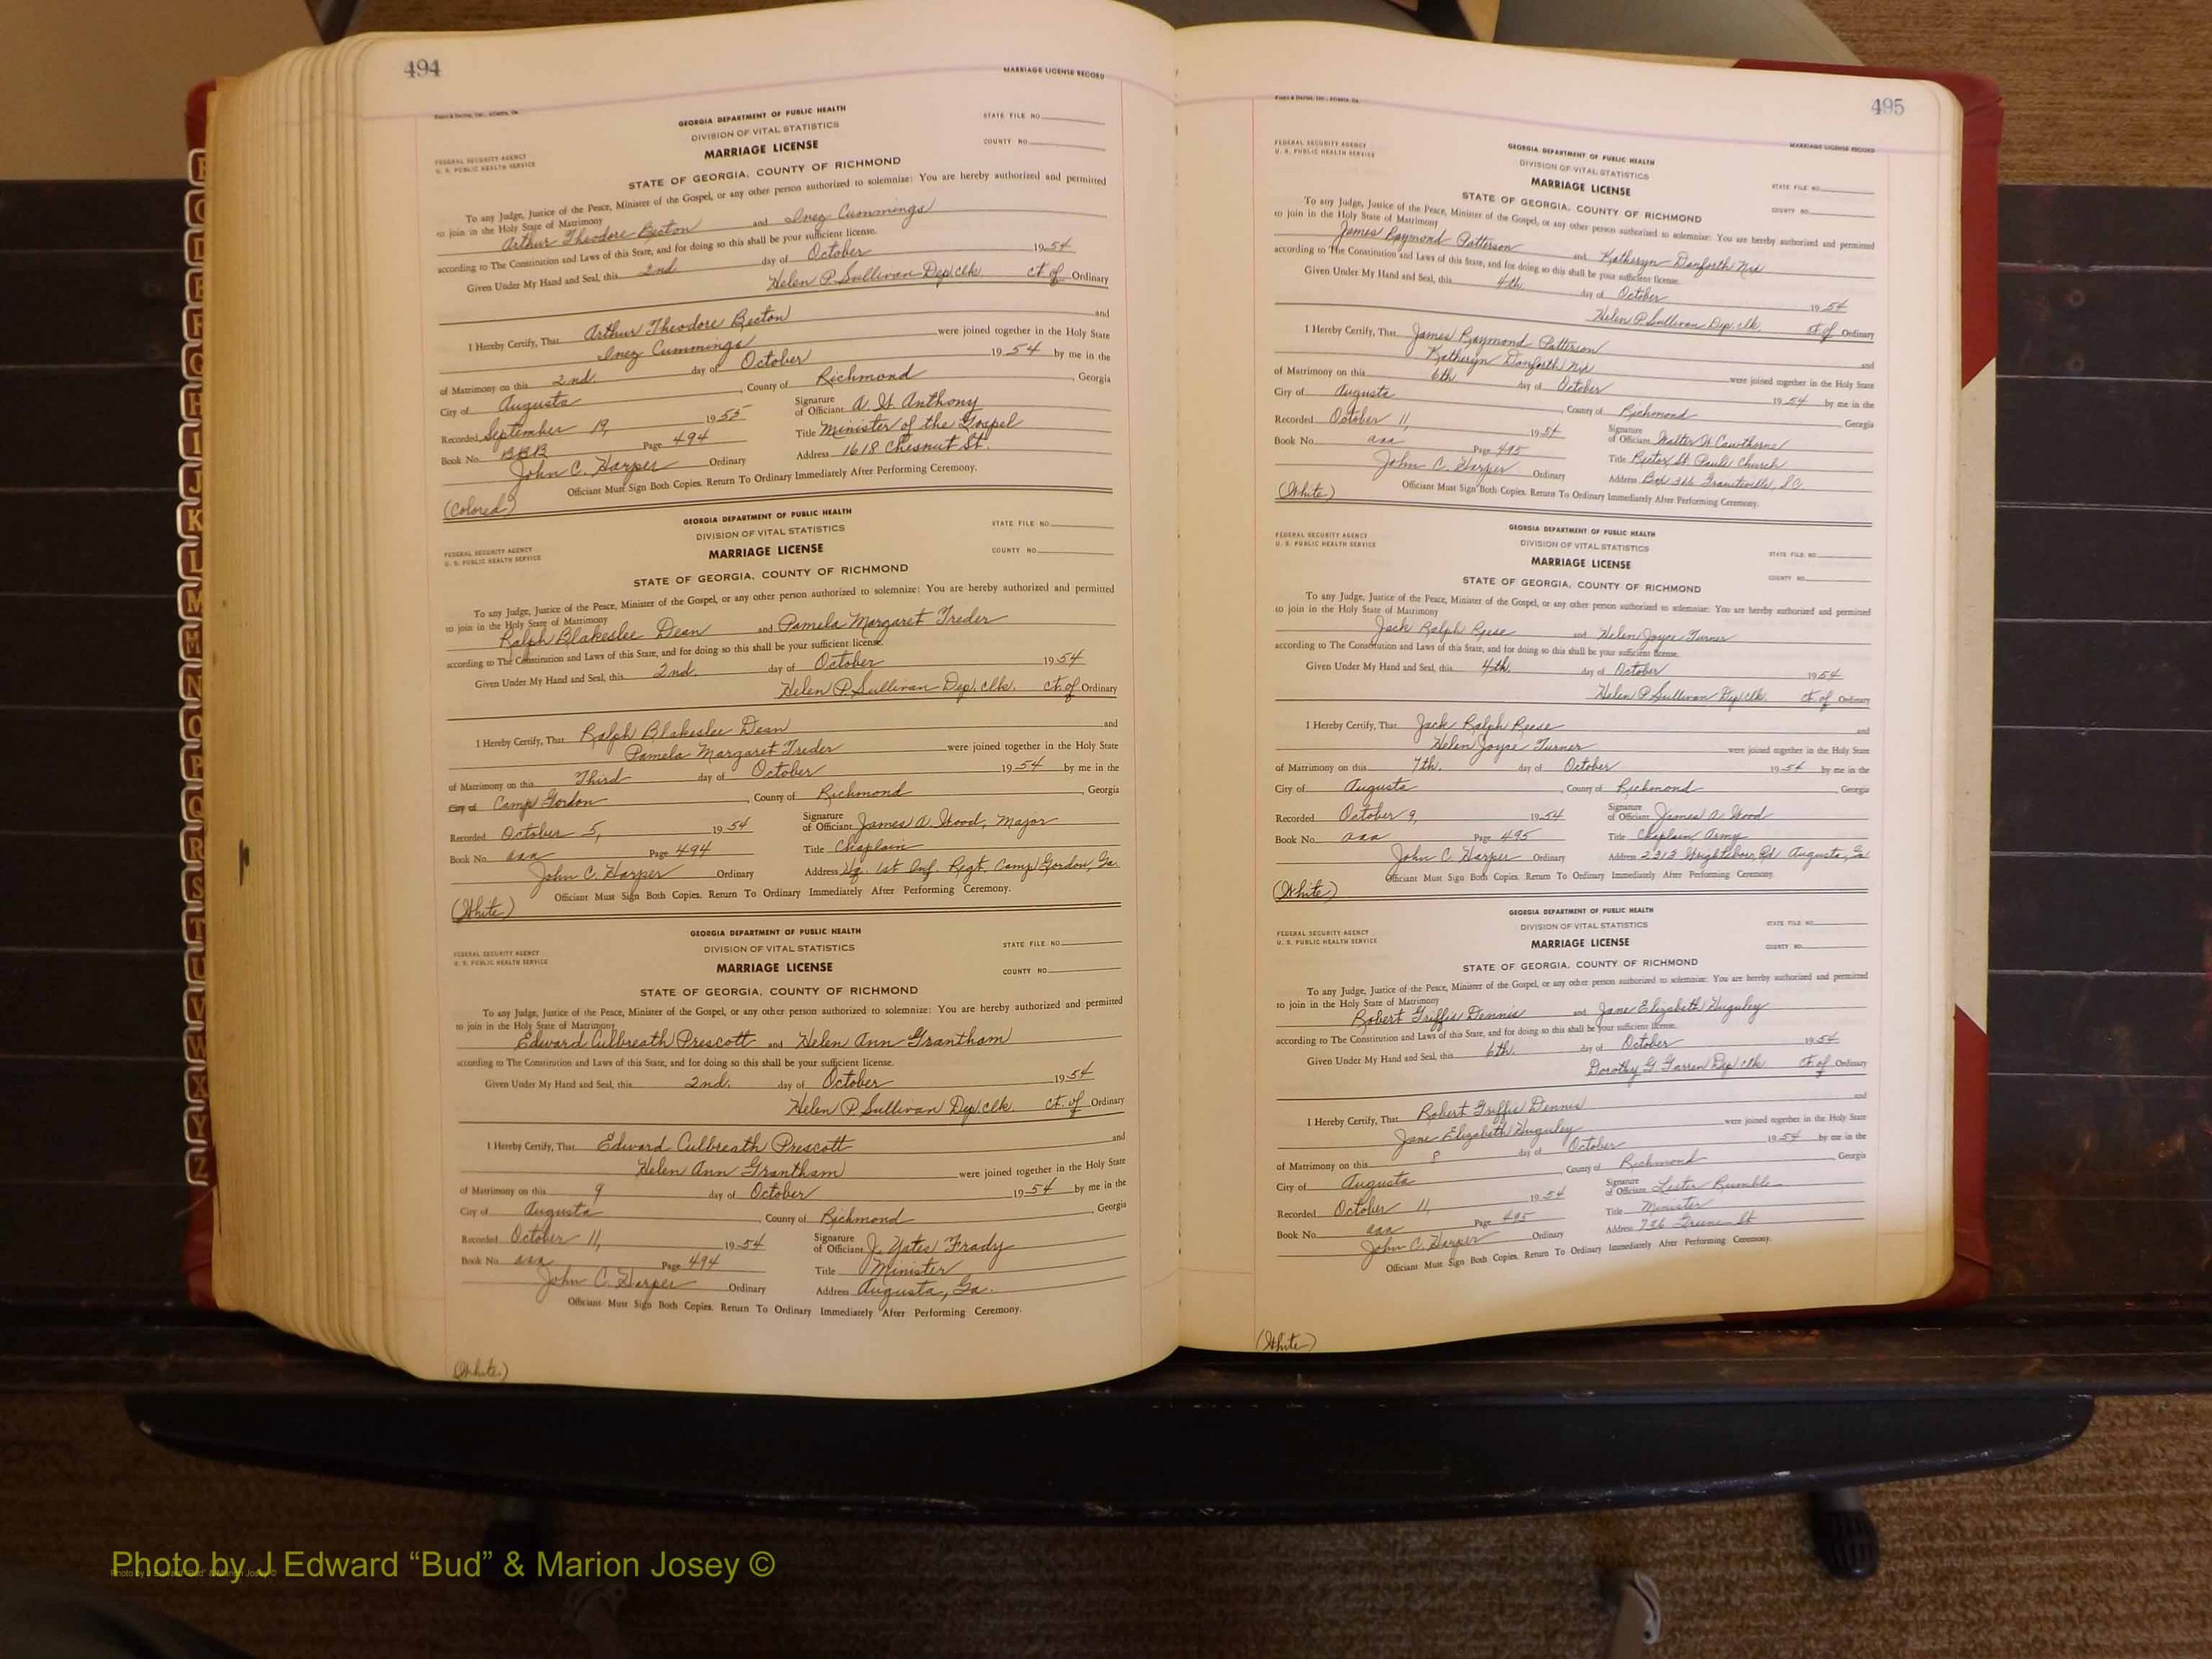 494
MARRIAGE LICENSE RECORD
GEORGIA DEPARTMENT OF PUBLIC HEALTH
DIVISION OF VITAL STATISTICS
MARRIAGE LICENSE
STATE OF GEORGIA, COUNTY OF RICHMOND
STATE FILE NO.
COUNTY NO.
FEDERAL SECURITY AGENCY
U. S. PUBLIC HEALTH SERVICE
To any Judge, Justice of the Peace, Minister of the Gospel, or any other person authorized to solemnize: You are hereby authorized and permitted
to join in the Holy State of Matrimony
Arthur Theodore Becton and Inez Cummings
according to The Constitution and Laws of this State, and for doing so this shall be your sufficient license.
Given Under My Hand and Seal, this 2nd day of October 1954
Helen P. Sullivan Dep. clk. ct. of Ordinary
I Hereby Certify, That Arthur Theodore Becton and
Inez Cummings were joined together in the Holy State
of Matrimony on this 2nd. day of October 1954 by me in the
City of Augusta, County of Richmond, Georgia
Recorded September 19, 1955 Signature of Officiant A. H. Anthony
Book No. BBB Page 494 Title Minister of the Gospel
John C. Harper Ordinary Address 1618 Chesnut St.
Officiant Must Sign Both Copies. Return To Ordinary Immediately After Performing Ceremony.
(Colored)
GEORGIA DEPARTMENT OF PUBLIC HEALTH
DIVISION OF VITAL STATISTICS
MARRIAGE LICENSE
STATE OF GEORGIA, COUNTY OF RICHMOND
STATE FILE NO.
COUNTY NO.
FEDERAL SECURITY AGENCY
U. S. PUBLIC HEALTH SERVICE
To any Judge, Justice of the Peace, Minister of the Gospel, or any other person authorized to solemnize: You are hereby authorized and permitted
to join in the Holy State of Matrimony
Ralph Blakeslee Dean and Pamela Margaret Treder
according to The Constitution and Laws of this State, and for doing so this shall be your sufficient license.
Given Under My Hand and Seal, this 2nd. day of October 1954
Helen P. Sullivan Dep. clk. ct. of Ordinary
I Hereby Certify, That Ralph Blakeslee Dean and
Pamela Margaret Treder were joined together in the Holy State
of Matrimony on this Third day of October 1954 by me in the
City of Camp Gordon, County of Richmond, Georgia
Recorded October 5, 1954 Signature of Officiant James A. Wood, Major
Book No. aaa Page 494 Title Chaplain
John C. Harper Ordinary Address Hq. 1st Inf. Regt. Camp Gordon, Ga.
Officiant Must Sign Both Copies. Return To Ordinary Immediately After Performing Ceremony.
(White)
GEORGIA DEPARTMENT OF PUBLIC HEALTH
DIVISION OF VITAL STATISTICS
MARRIAGE LICENSE
STATE OF GEORGIA, COUNTY OF RICHMOND
STATE FILE NO.
COUNTY NO.
FEDERAL SECURITY AGENCY
U. S. PUBLIC HEALTH SERVICE
To any Judge, Justice of the Peace, Minister of the Gospel, or any other person authorized to solemnize: You are hereby authorized and permitted
to join in the Holy State of Matrimony
Edward Culbreath Prescott and Helen Ann Grantham
according to The Constitution and Laws of this State, and for doing so this shall be your sufficient license.
Given Under My Hand and Seal, this 2nd. day of October 1954
Helen P. Sullivan Dep. clk. ct. of Ordinary
I Hereby Certify, That Edward Culbreath Prescott and
Helen Ann Grantham were joined together in the Holy State
of Matrimony on this 9 day of October 1954 by me in the
City of Augusta, County of Richmond, Georgia
Recorded October 11, 1954 Signature of Officiant J. Yates Frady
Book No. aaa Page 494 Title Minister
John C. Harper Ordinary Address Augusta, Ga.
Officiant Must Sign Both Copies. Return To Ordinary Immediately After Performing Ceremony.
(White)
495
MARRIAGE LICENSE RECORD
GEORGIA DEPARTMENT OF PUBLIC HEALTH
DIVISION OF VITAL STATISTICS
MARRIAGE LICENSE
STATE OF GEORGIA, COUNTY OF RICHMOND
STATE FILE NO.
COUNTY NO.
FEDERAL SECURITY AGENCY
U. S. PUBLIC HEALTH SERVICE
To any Judge, Justice of the Peace, Minister of the Gospel, or any other person authorized to solemnize: You are hereby authorized and permitted
to join in the Holy State of Matrimony
James Raymond Patterson and Katheryn Danforth Nix
according to The Constitution and Laws of this State, and for doing so this shall be your sufficient license.
Given Under My Hand and Seal, this 4th. day of October 1954
Helen P. Sullivan Dep. clk. ct. of Ordinary
I Hereby Certify, That James Raymond Patterson and
Katheryn Danforth Nix were joined together in the Holy State
of Matrimony on this 6th. day of October 1954 by me in the
City of Augusta, County of Richmond, Georgia
Recorded October 11, 1954 Signature of Officiant Walter H. Cawthorne
Book No. aaa Page 495 Title Rector St. Pauls Church
John C. Harper Ordinary Address Box 366 Graniteville, S.C.
Officiant Must Sign Both Copies. Return To Ordinary Immediately After Performing Ceremony.
(White)
GEORGIA DEPARTMENT OF PUBLIC HEALTH
DIVISION OF VITAL STATISTICS
MARRIAGE LICENSE
STATE OF GEORGIA, COUNTY OF RICHMOND
STATE FILE NO.
COUNTY NO.
FEDERAL SECURITY AGENCY
U. S. PUBLIC HEALTH SERVICE
To any Judge, Justice of the Peace, Minister of the Gospel, or any other person authorized to solemnize: You are hereby authorized and permitted
to join in the Holy State of Matrimony
Jack Ralph Reese and Helen Joyce Turner
according to The Constitution and Laws of this State, and for doing so this shall be your sufficient license.
Given Under My Hand and Seal, this 4th. day of October 1954
Helen P. Sullivan Dep. clk. ct. of Ordinary
I Hereby Certify, That Jack Ralph Reese and
Helen Joyce Turner were joined together in the Holy State
of Matrimony on this 7th. day of October 1954 by me in the
City of Augusta, County of Richmond, Georgia
Recorded October 9, 1954 Signature of Officiant James A. Wood
Book No. aaa Page 495 Title Chaplain Army
John C. Harper Ordinary Address 2313 Wrightsboro Rd Augusta, Ga
Officiant Must Sign Both Copies. Return To Ordinary Immediately After Performing Ceremony.
(White)
GEORGIA DEPARTMENT OF PUBLIC HEALTH
DIVISION OF VITAL STATISTICS
MARRIAGE LICENSE
STATE OF GEORGIA, COUNTY OF RICHMOND
STATE FILE NO.
COUNTY NO.
FEDERAL SECURITY AGENCY
U. S. PUBLIC HEALTH SERVICE
To any Judge, Justice of the Peace, Minister of the Gospel, or any other person authorized to solemnize: You are hereby authorized and permitted
to join in the Holy State of Matrimony
Robert Griffis Dennis and Jane Elizabeth Huguley
according to The Constitution and Laws of this State, and for doing so this shall be your sufficient license.
Given Under My Hand and Seal, this 6th. day of October 1954
Dorothy G. Farren Dep clk. ct. of Ordinary
I Hereby Certify, That Robert Griffis Dennis and
Jane Elizabeth Huguley were joined together in the Holy State
of Matrimony on this 8 day of October 1954 by me in the
City of Augusta, County of Richmond, Georgia
Recorded October 11, 1954 Signature of Officiant Lester Rumble
Book No. aaa Page 495 Title Minister
John C. Harper Ordinary Address 736 Greene St
Officiant Must Sign Both Copies. Return To Ordinary Immediately After Performing Ceremony.
(White)
Photo by J Edward “Bud” & Marion Josey ©